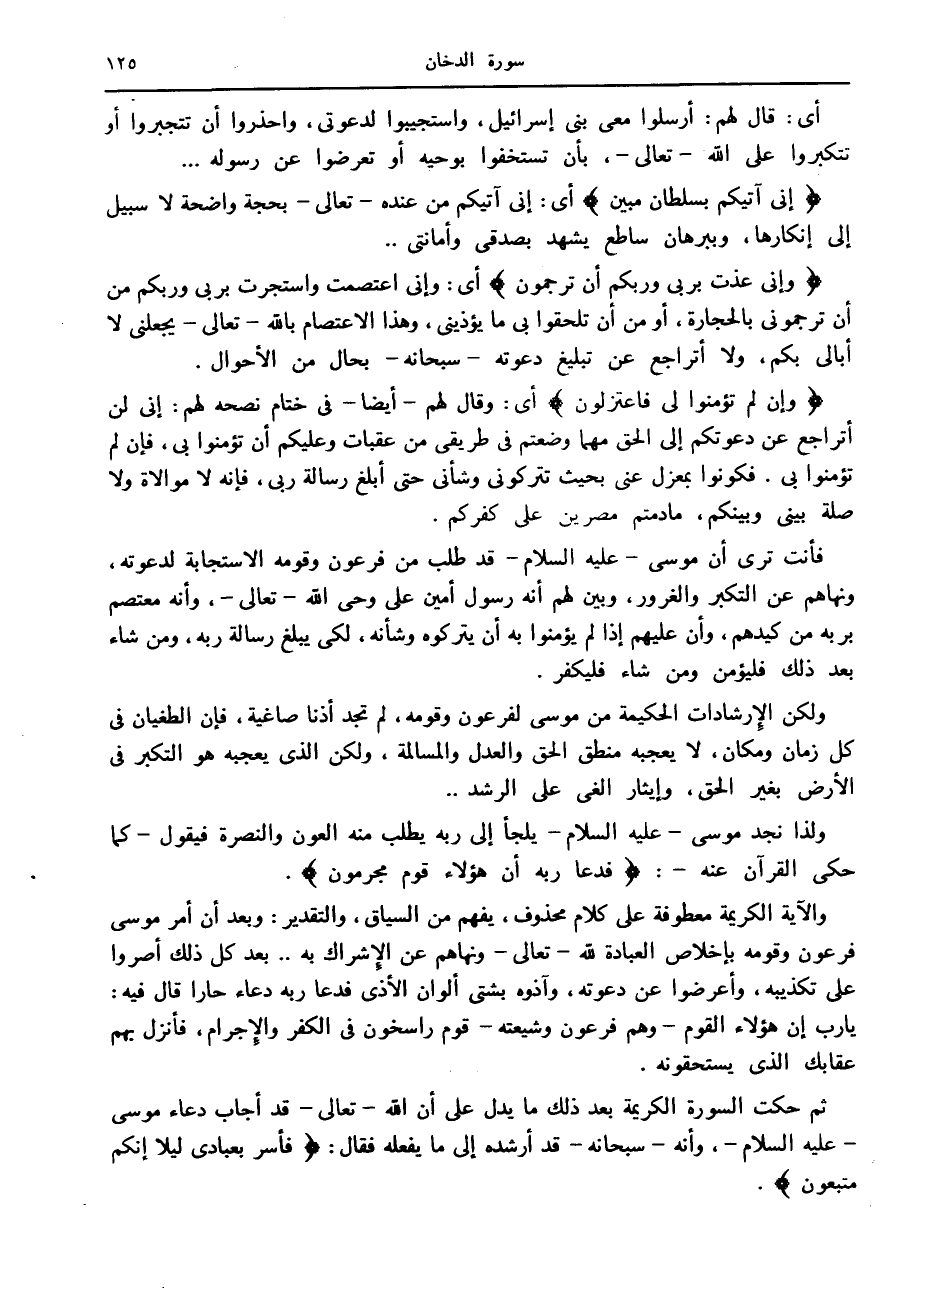 سورة الدخان
١٢٥
أى : قال لهم : أرسلوا معى بنى إسرائيل ، واستجيبوا لدعوتى ، واحذروا أن تتجبروا أو
تتكبروا على الله – تعالى – ، بأن تستخفوا بوحيه أو تعرضوا عن رسوله ...
﴿ إنى آتيكم بسلطان مبين ﴾ أى : إنى آتيكم من عنده – تعالى – بحجة واضحة لا سبيل
إلى إنكارها ، وببرهان ساطع يشهد بصدقى وأمانتى ..
﴿ وإنى عذت بربى وربكم أن ترجمون ﴾ أى : وإنى اعتصمت واستجرت بربى وربكم من
أن ترجمونى بالحجارة ، أو من أن تلحقوا بى ما يؤذينى ، وهذا الاعتصام بالله – تعالى – يجعلنى لا
أبالى بكم ، ولا أتراجع عن تبليغ دعوته – سبحانه – بحال من الأحوال .
﴿ وإن لم تؤمنوا لى فاعتزلون ﴾ أى : وقال لهم – أيضا – فى ختام نصحه لهم : إنى لن
أتراجع عن دعوتكم إلى الحق مهما وضعتم فى طريقى من عقبات وعليكم أن تؤمنوا بى ، فإن لم
تؤمنوا بى . فكونوا بمعزل عنى بحيث تتركونى وشأنى حتى أبلغ رسالة ربى ، فإنه لا موالاة ولا
صلة بينى وبينكم ، مادمتم مصرين على كفركم .
فأنت ترى أن موسى – عليه السلام – قد طلب من فرعون وقومه الاستجابة لدعوته ،
ونهاهم عن التكبر والغرور ، وبين لهم أنه رسول أمين على وحى الله – تعالى – ، وأنه معتصم
بربه من كيدهم ، وأن عليهم إذا لم يؤمنوا به أن يتركوه وشأنه ، لكى يبلغ رسالة ربه ، ومن شاء
بعد ذلك فليؤمن ومن شاء فليكفر .
ولكن الإرشادات الحكيمة من موسى لفرعون وقومه ، لم تجد أذنا صاغية ، فإن الطغيان فى
كل زمان ومكان ، لا يعجبه منطق الحق والعدل والمسالمة ، ولكن الذى يعجبه هو التكبر فى
الأرض بغير الحق ، وإيثار الغى على الرشد ..
ولذا نجد موسى – عليه السلام – يلجأ إلى ربه يطلب منه العون والنصرة فيقول – كما
حكى القرآن عنه – : ﴿ فدعا ربه أن هؤلاء قوم مجرمون ﴾ .
والآية الكريمة معطوفة على كلام محذوف ، يفهم من السياق ، والتقدير : وبعد أن أمر موسى
فرعون وقومه بإخلاص العبادة لله – تعالى – ونهاهم عن الإشراك به .. بعد كل ذلك أصروا
على تكذيبه ، وأعرضوا عن دعوته ، وآذوه بشتى ألوان الأذى فدعا ربه دعاء حارا قال فيه :
يارب إن هؤلاء القوم – وهم فرعون وشيعته – قوم راسخون فى الكفر والإجرام ، فأنزل بهم
عقابك الذى يستحقونه .
ثم حكت السورة الكريمة بعد ذلك ما يدل على أن الله – تعالى – قد أجاب دعاء موسى
– عليه السلام – ، وأنه – سبحانه – قد أرشده إلى ما يفعله فقال : ﴿ فأسر بعبادى ليلا إنكم
متبعون ﴾ .